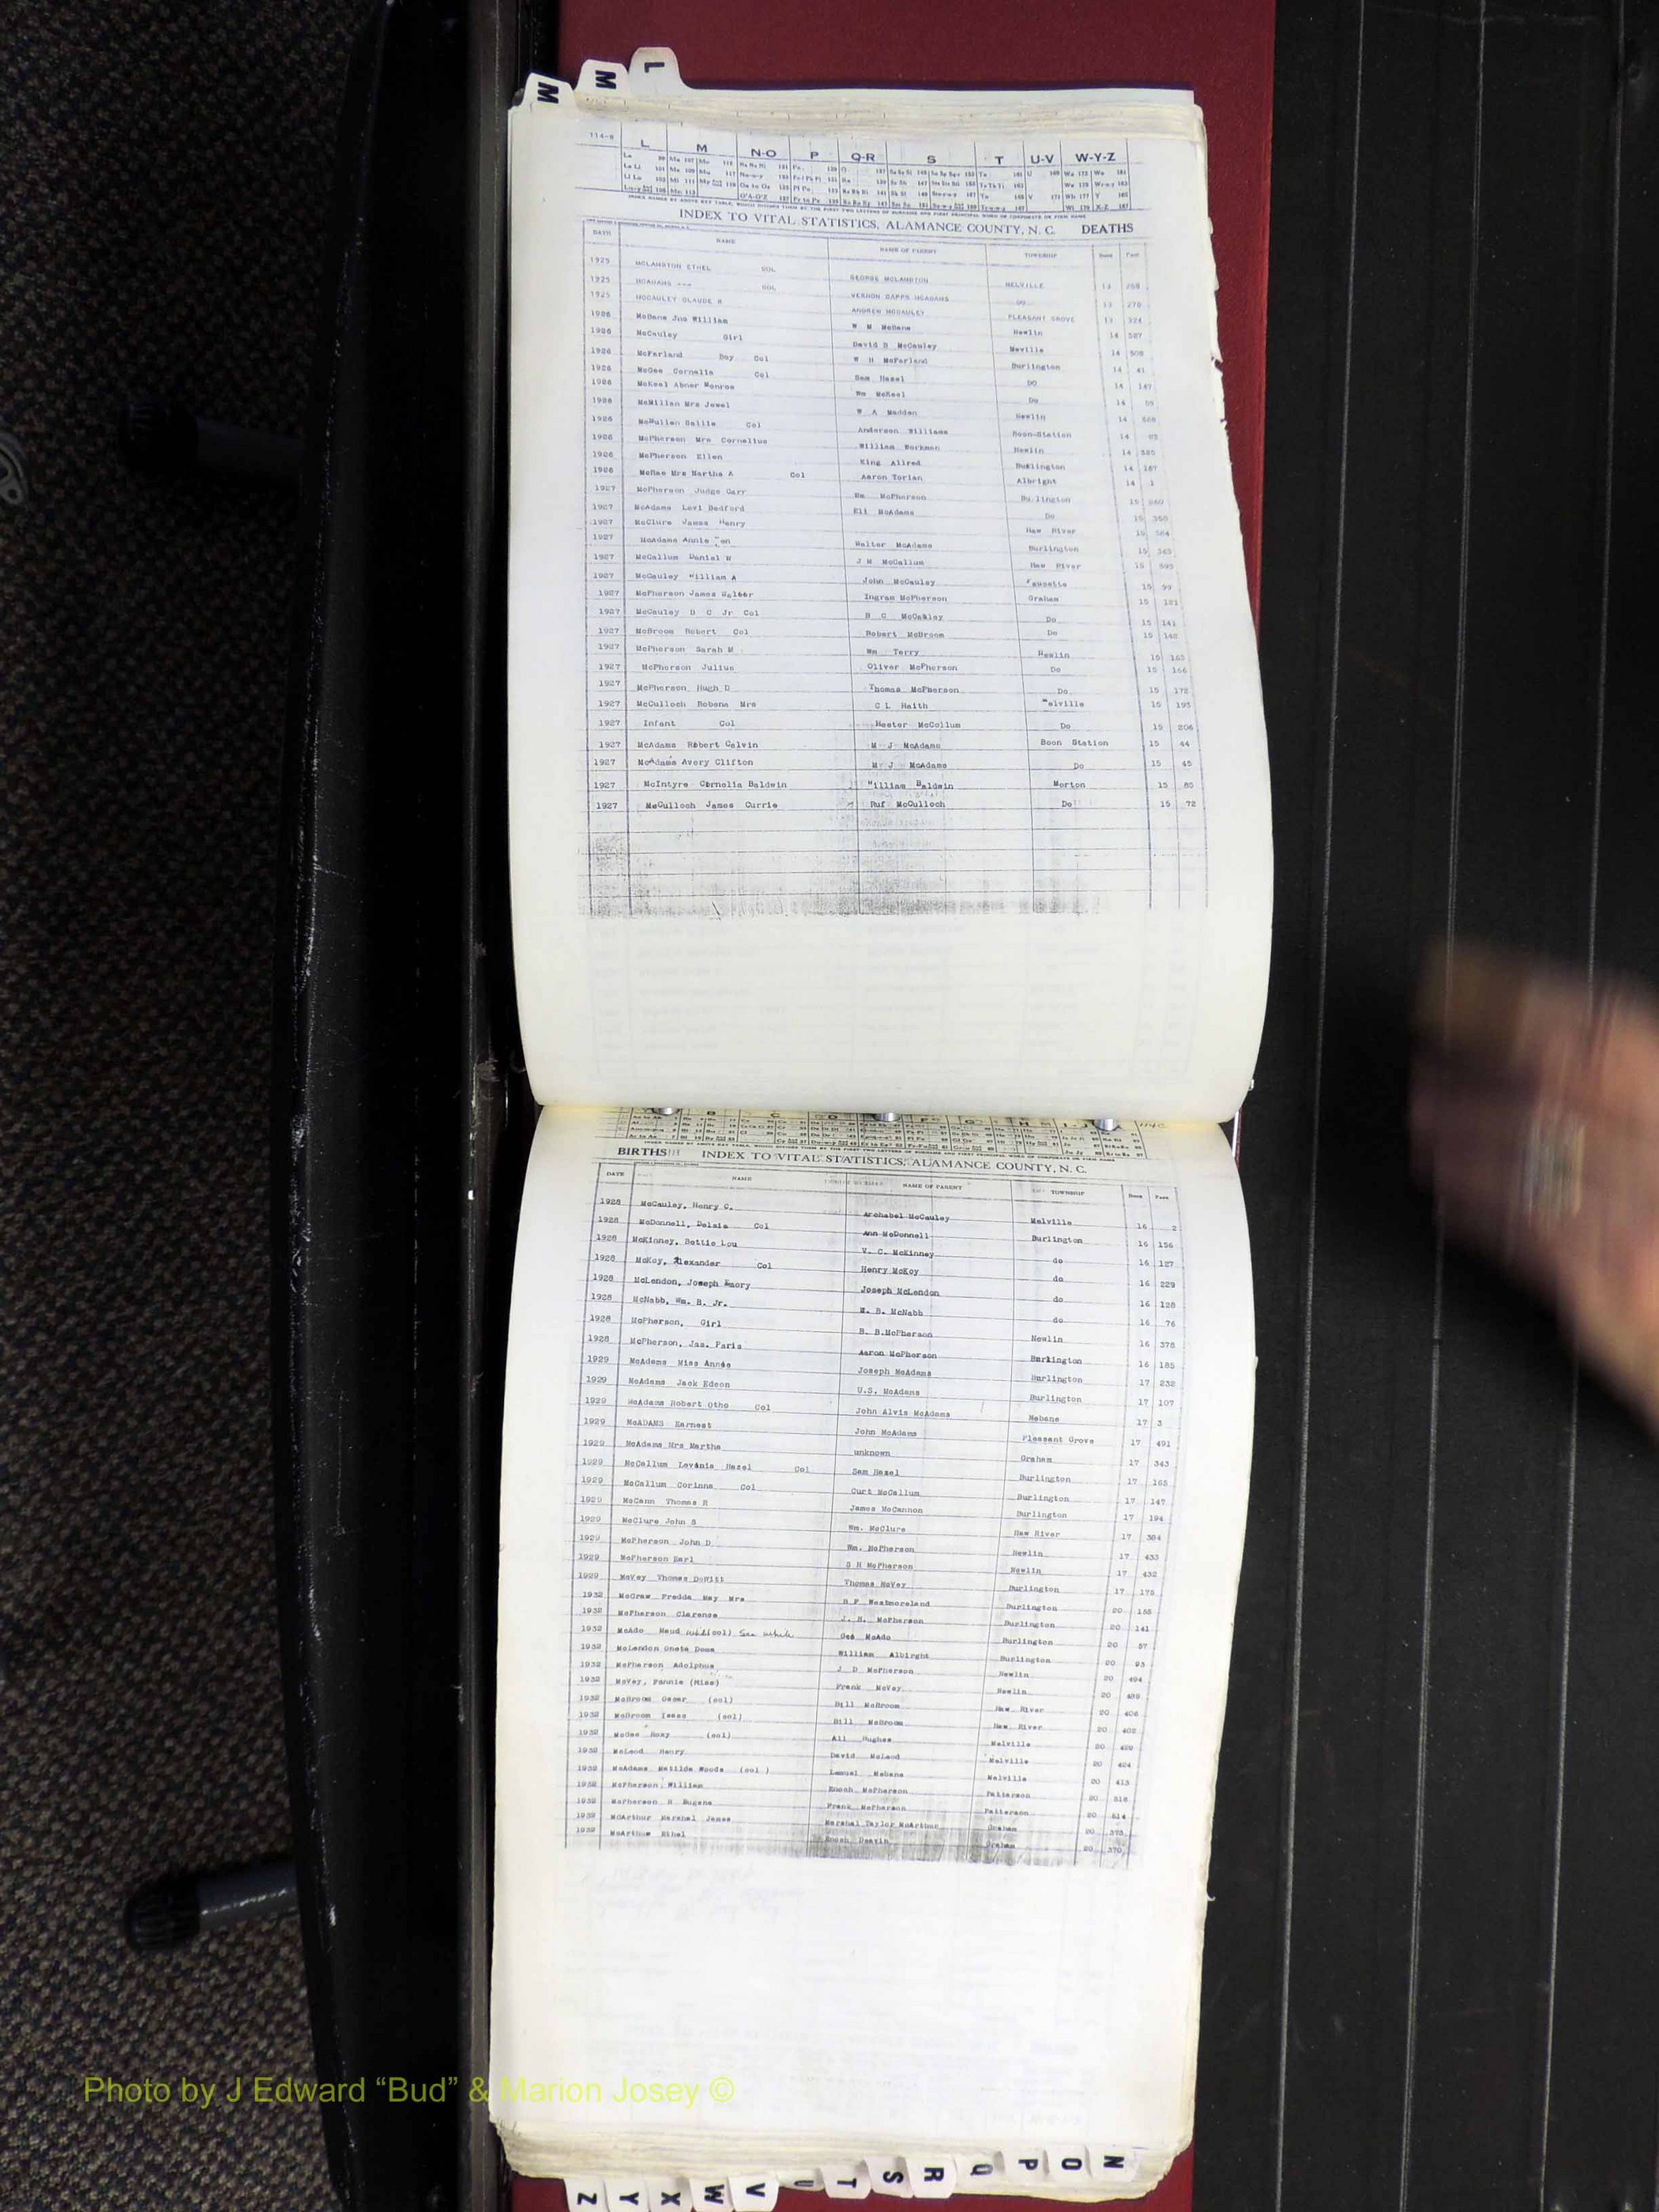 L
M
M
114-B
L M N-O P Q-R S T U-V W-Y-Z
INDEX TO VITAL STATISTICS, ALAMANCE COUNTY, N. C. DEATHS
DATE NAME NAME OF PARENT TOWNSHIP BOOK PAGE
1925 MCLANGTON ETHEL COL GEORGE MCLANGTON MELVILLE 13 268
1925 MCADAMS --- COL VERNON CAPPS MCADAMS DO 13 270
1925 MCCAULEY CLAUDE R ANDREW MCCAULEY PLEASANT GROVE 13 324
1926 McBane Jno William W M McBane Newlin 14 587
1926 McCauley Girl David B McCauley Meville 14 508
1926 McFarland Boy Col W H McFarland Burlington 14 41
1926 McGee Cornelia Col Sam Hazel DO 14 147
1926 McKeel Abner Monroe Wm McKeel Do 14 59
1926 McMillan Mrs Jewel W A Madden Newlin 14
1926 McMullen Sallie Col Anderson Williams Boon-Station 14
1926 McPherson Mrs Cornelius William Workman Newlin 14 585
1926 McPherson Ellen King Allred Burlington 14 167
1926 McRae Mrs Martha A Col Aaron Torian Albright 14 1
1927 McPherson Judge Carr Wm McPherson Burlington 15 260
1927 McAdams Levi Bedford Eli McAdams Do 15 350
1927 McClure James Henry Haw River 15 564
1927 McAdams Annie Walter McAdams Burlington 15 363
1927 McCallum Daniel W J M McCallum Haw River 15 593
1927 McCauley William A John McCauley Faucette 15 99
1927 McPherson James Ingram McPherson Graham 15 121
1927 McCauley D C Jr Col D C McCauley Do 15 141
1927 McBroom Robert Col Robert McBroom Do 15 148
1927 McPherson Sarah M Wm Terry Newlin 15 163
1927 McPherson Julius Oliver McPherson Do 15 166
1927 McPherson Hugh D Thomas McPherson Do 15 172
1927 McCulloch Robena Mrs C L Haith Melville 15 193
1927 Infant Col Hester McCollum Do 15 206
1927 McAdams Robert Calvin M J McAdams Boon Station 15 44
1927 McAdams Avery Clifton M J McAdams Do 15 45
1927 McIntyre Cornelia Baldwin William Baldwin Morton 15 85
1927 McCulloch James Currie Ruf McCulloch Do 15 72
114C
BIRTHS INDEX TO VITAL STATISTICS, ALAMANCE COUNTY, N. C.
DATE NAME NAME OF PARENT TOWNSHIP BOOK PAGE
1928 McCauley, Henry C. Archabel McCauley Melville 16 2
1928 McDonnell, Delsie Col Ann McDonnell Burlington 16 156
1928 McKinney, Bettie Lou V. C. McKinney do 16 127
1928 McKoy, Alexander Col Henry McKoy do 16 229
1928 McLendon, Joseph Emory Joseph McLendon do 16 128
1928 McNabb, Wm. B. Jr. W. B. McNabb do 16 76
1928 McPherson, Girl B. B.McPherson Newlin 16 378
1928 McPherson, Jas. Paris Aaron McPherson Burlington 16 185
1929 McAdams Miss Annie Joseph McAdams Burlington 17 232
1929 McAdams Jack Edson U.S. McAdams Burlington 17 107
1929 McAdams Robert Otho Col John Alvis McAdams Mebane 17 3
1929 McADAMS Earnest John McAdams Pleasant Grove 17 491
1929 McAdams Mrs Martha unknown Graham 17 343
1929 McCallum Levania Hazel Col Sam Hazel Burlington 17 165
1929 McCallum Corinna Col Curt McCallum Burlington 17 147
1929 McCann Thomas R James McCannon Burlington 17 194
1929 McClure John S Wm. McClure Haw River 17 384
1929 McPherson John D Wm. McPherson Newlin 17 433
1929 McPherson Earl S H McPherson Newlin 17 432
1929 McVey Thomas DeWitt Thomas McVey Burlington 17 175
1932 McGraw Fredda May Mrs R F Westmoreland Burlington 20 155
1932 McPherson Clarence J. H. McPherson Burlington 20 141
1932 McAdo Maud (col) See white Geo McAdo Burlington 20 57
1932 McLendon Oneta Dove William Albirght Burlington 20 93
1932 McPherson Adolphus J D McPherson Newlin 20 494
1932 McVey, Fannie (Miss) Frank McVey Newlin 20 489
1932 McBroom Oscar (col) Bill McBroom Haw River 20 406
1932 McBroom Isaac (col) Bill McBroom Haw River 20 402
1932 McGee Roxy (col) All Hughes Melville 20 420
1932 McLeod Henry David McLeod Melville 20 424
1932 McAdams Matilda Woods (col ) Lemuel Mebane Melville 20 413
1932 McPherson William Enoch McPherson Patterson 20 518
1932 McPherson H Eugene Frank McPherson Patterson 20 514
1932 McArthur Marshal James Marshal Taylor McArthur Graham 20 373
1932 McArthur Ethel Enoch Graham 20 370
Photo by J Edward “Bud” & Marion Josey ©
N O P Q R S T U V W X Y Z